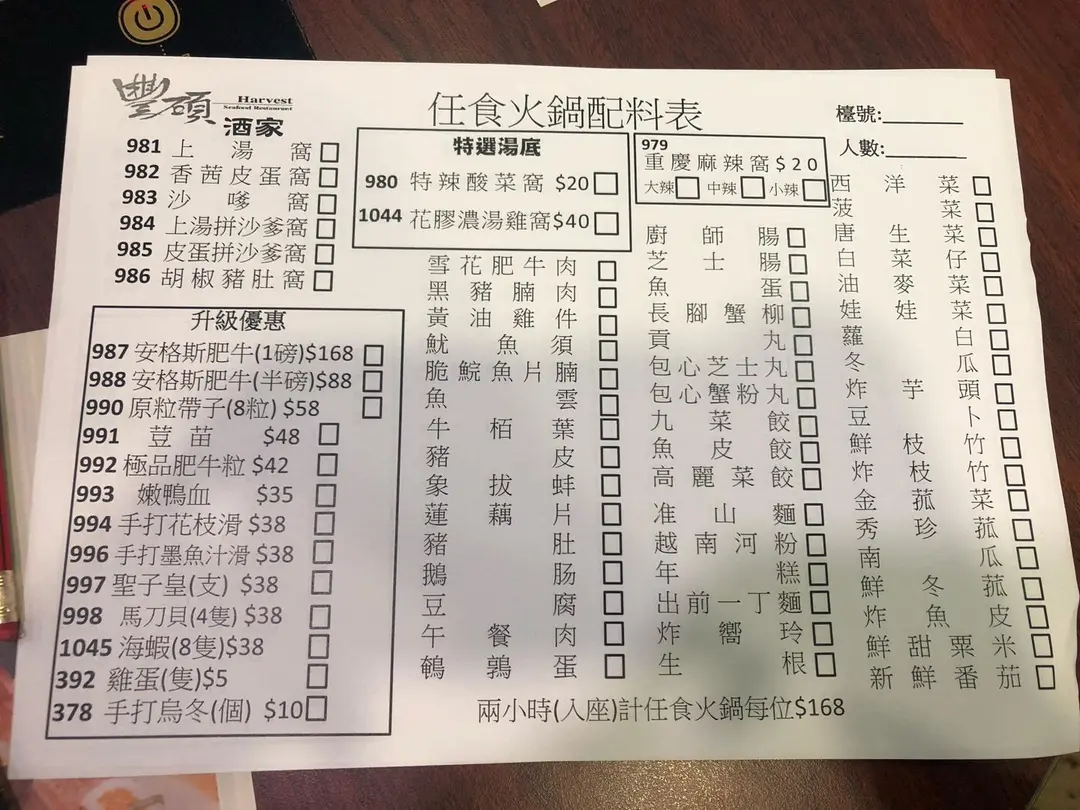 豐碩
Harvest
Seafood Restaurant
酒家
任食火鍋配料表
檯號:
人數:
981 上湯窩
982 香茜皮蛋窩
983 沙嗲窩
984 上湯拼沙爹窩
985 皮蛋拼沙爹窩
986 胡椒豬肚窩
特選湯底
980 特辣酸菜窩 $20
1044 花膠濃湯雞窩$40
979
重慶麻辣窩$20
大辣 中辣 小辣
升級優惠
987 安格斯肥牛(1磅)$168
988 安格斯肥牛(半磅)$88
990 原粒帶子(8粒) $58
991 荳苗 $48
992 極品肥牛粒 $42
993 嫩鴨血 $35
994 手打花枝滑 $38
996 手打墨魚汁滑 $38
997 聖子皇(支) $38
998 馬刀貝(4隻) $38
1045 海蝦(8隻)$38
392 雞蛋(隻)$5
378 手打烏冬(個) $10
雪花肥牛肉
黑豬腩肉
黃油雞件
魷魚須
脆鯇魚片腩
魚雲
牛栢葉
豬皮
象拔蚌
蓮藕片
豬肚
鵝肠
豆腐
午餐肉
鵪鶉蛋
廚師腸
芝士腸
魚蛋
長腳蟹柳
貢丸
包心芝士丸
包心蟹粉丸
九菜餃
魚皮餃
高麗菜餃
准山麵
越南河粉
年糕
出前一丁麵
炸嚮玲
生根
西洋菜
菠菜
唐生菜
白菜仔
油麥菜
娃娃菜
蘿白
冬瓜
炸芋頭
豆卜
鮮枝竹
炸枝竹
金菰菜
秀珍菰
南瓜
鮮冬菰
炸魚皮
鮮甜粟米
新鮮番茄
兩小時(入座)計任食火鍋每位$168